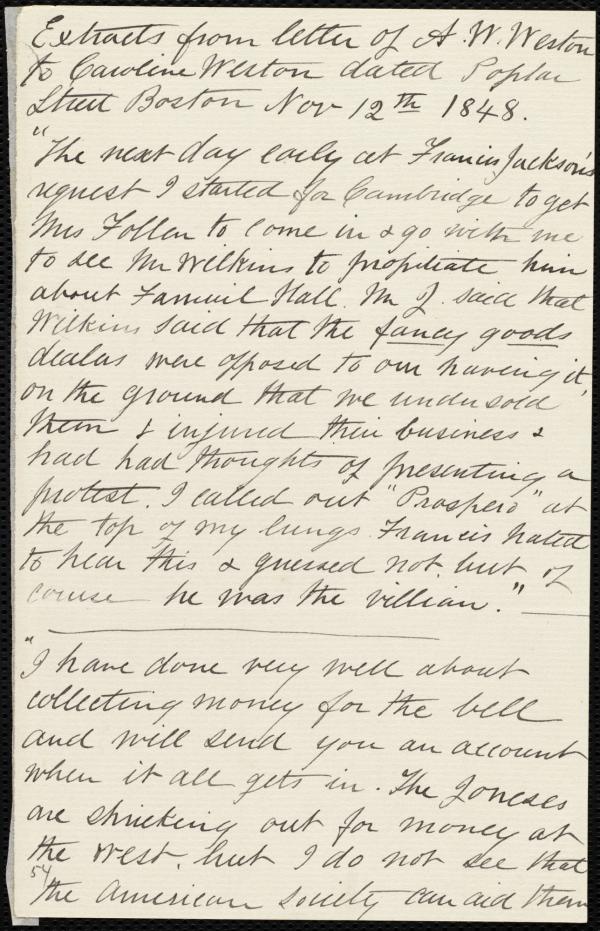 Extracts from letter of A. W. Weston
to Caroline Weston dated Poplar
Street Boston Nov 12th 1848.
"The next day early at Francis Jackson's
request I started for Cambridge to get
Mrs Follen to come in & go with me
to see Mr Wilkins to propitiate him
about Faneuil Hall. Mr J. said that
Wilkins said that the fancy goods
dealers were opposed to our having it,
on the ground that we undersold
them & injured their business &
had had thoughts of presenting a
protest. I called out "Prospero" at
the top of my lungs. Francis hated
to hear this & guessed not, but of
course he was the villian."
"I have done very well about
collecting money for the bell
and will send you an account
when it all gets in. The Joneses
are shrieking out for money at
the West, but I do not see that
54
the American Society can aid them